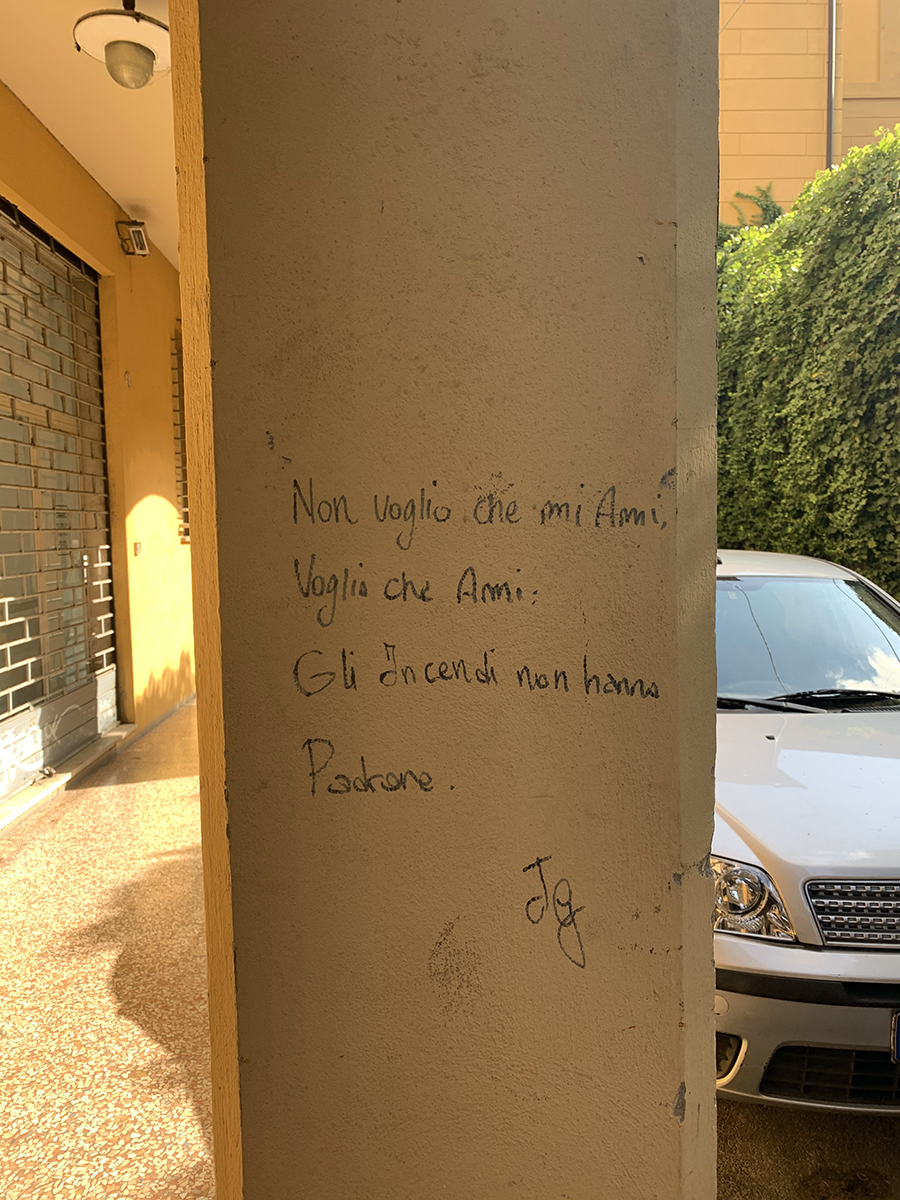 Non voglio che mi Ami,
Voglio che Ami:
Gli Incendi non hanno
Padrone.
Jg